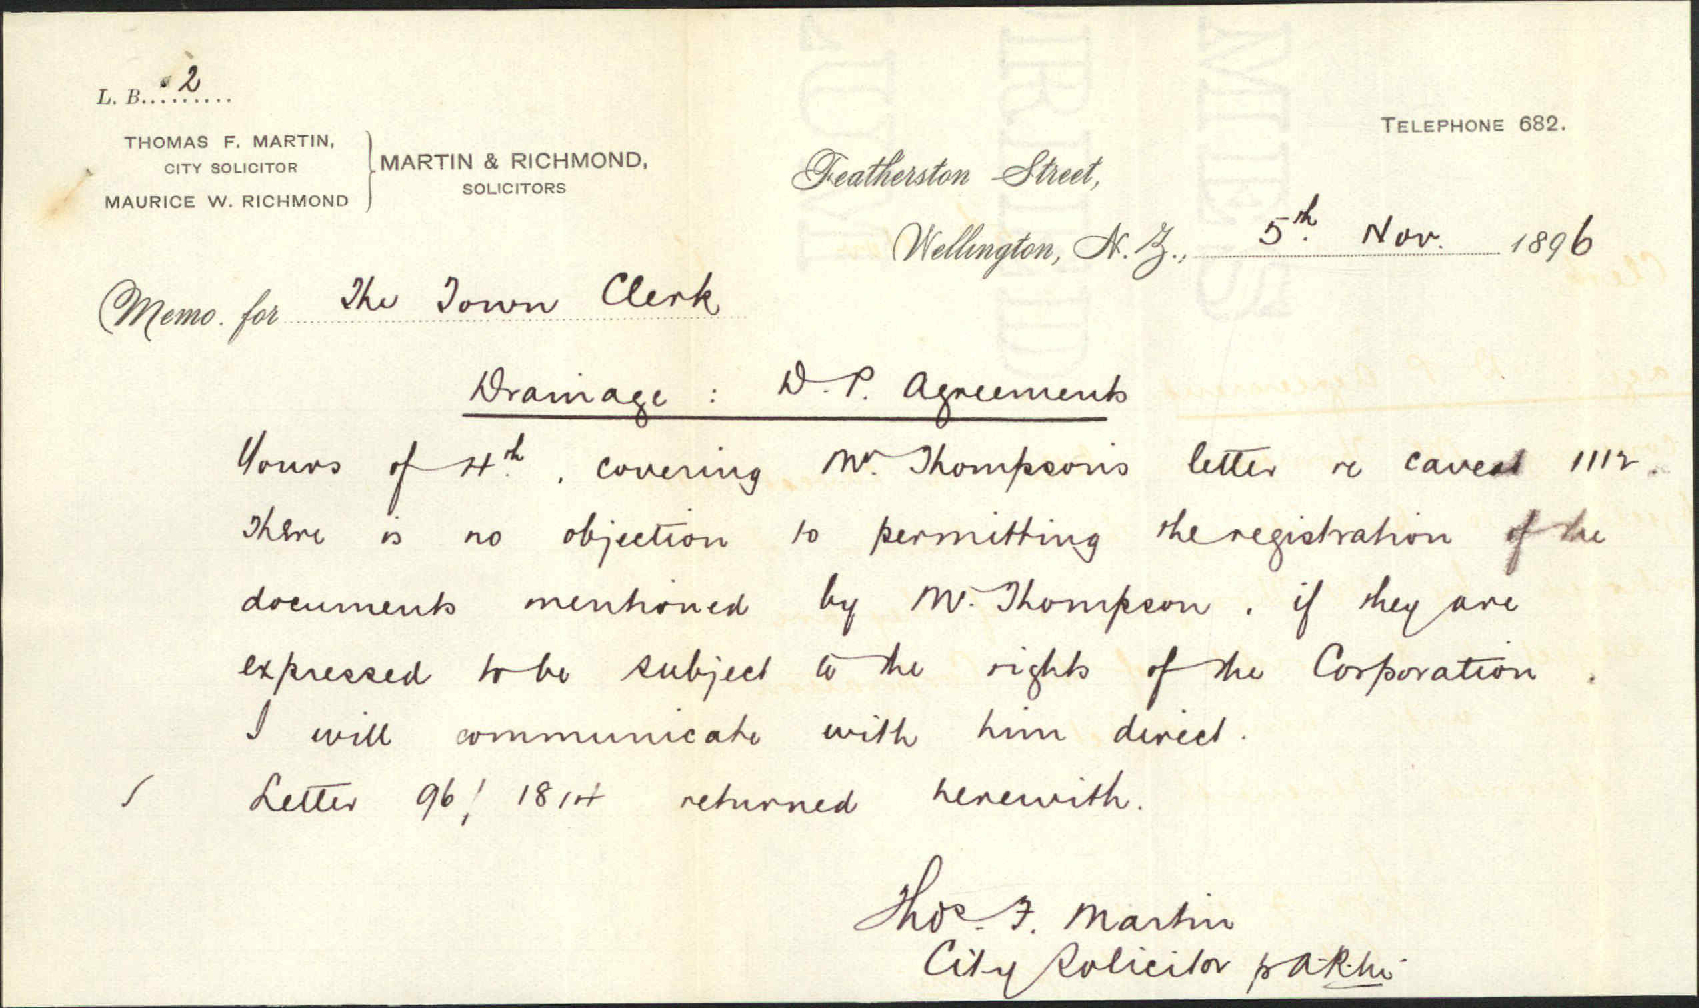 L. B. 2
THOMAS F. MARTIN,
CITY SOLICITOR
MAURICE W. RICHMOND
MARTIN & RICHMOND,
SOLICITORS
TELEPHONE 682.
Featherston Street,
Wellington, N.Z., 5th. Nov. 1896
Memo. for The Town Clerk
Drainage : D.P. Agreements
Yours of 4th, covering Mr. Thompson's letter re caveat 1112.
There is no objection to permitting the registration of the
documents mentioned by Mr. Thompson, if they are
expressed to be subject to the rights of the Corporation.
I will communicate with him direct.
Letter 96/1814 returned herewith.
Thos. F. Martin
City Solicitor p